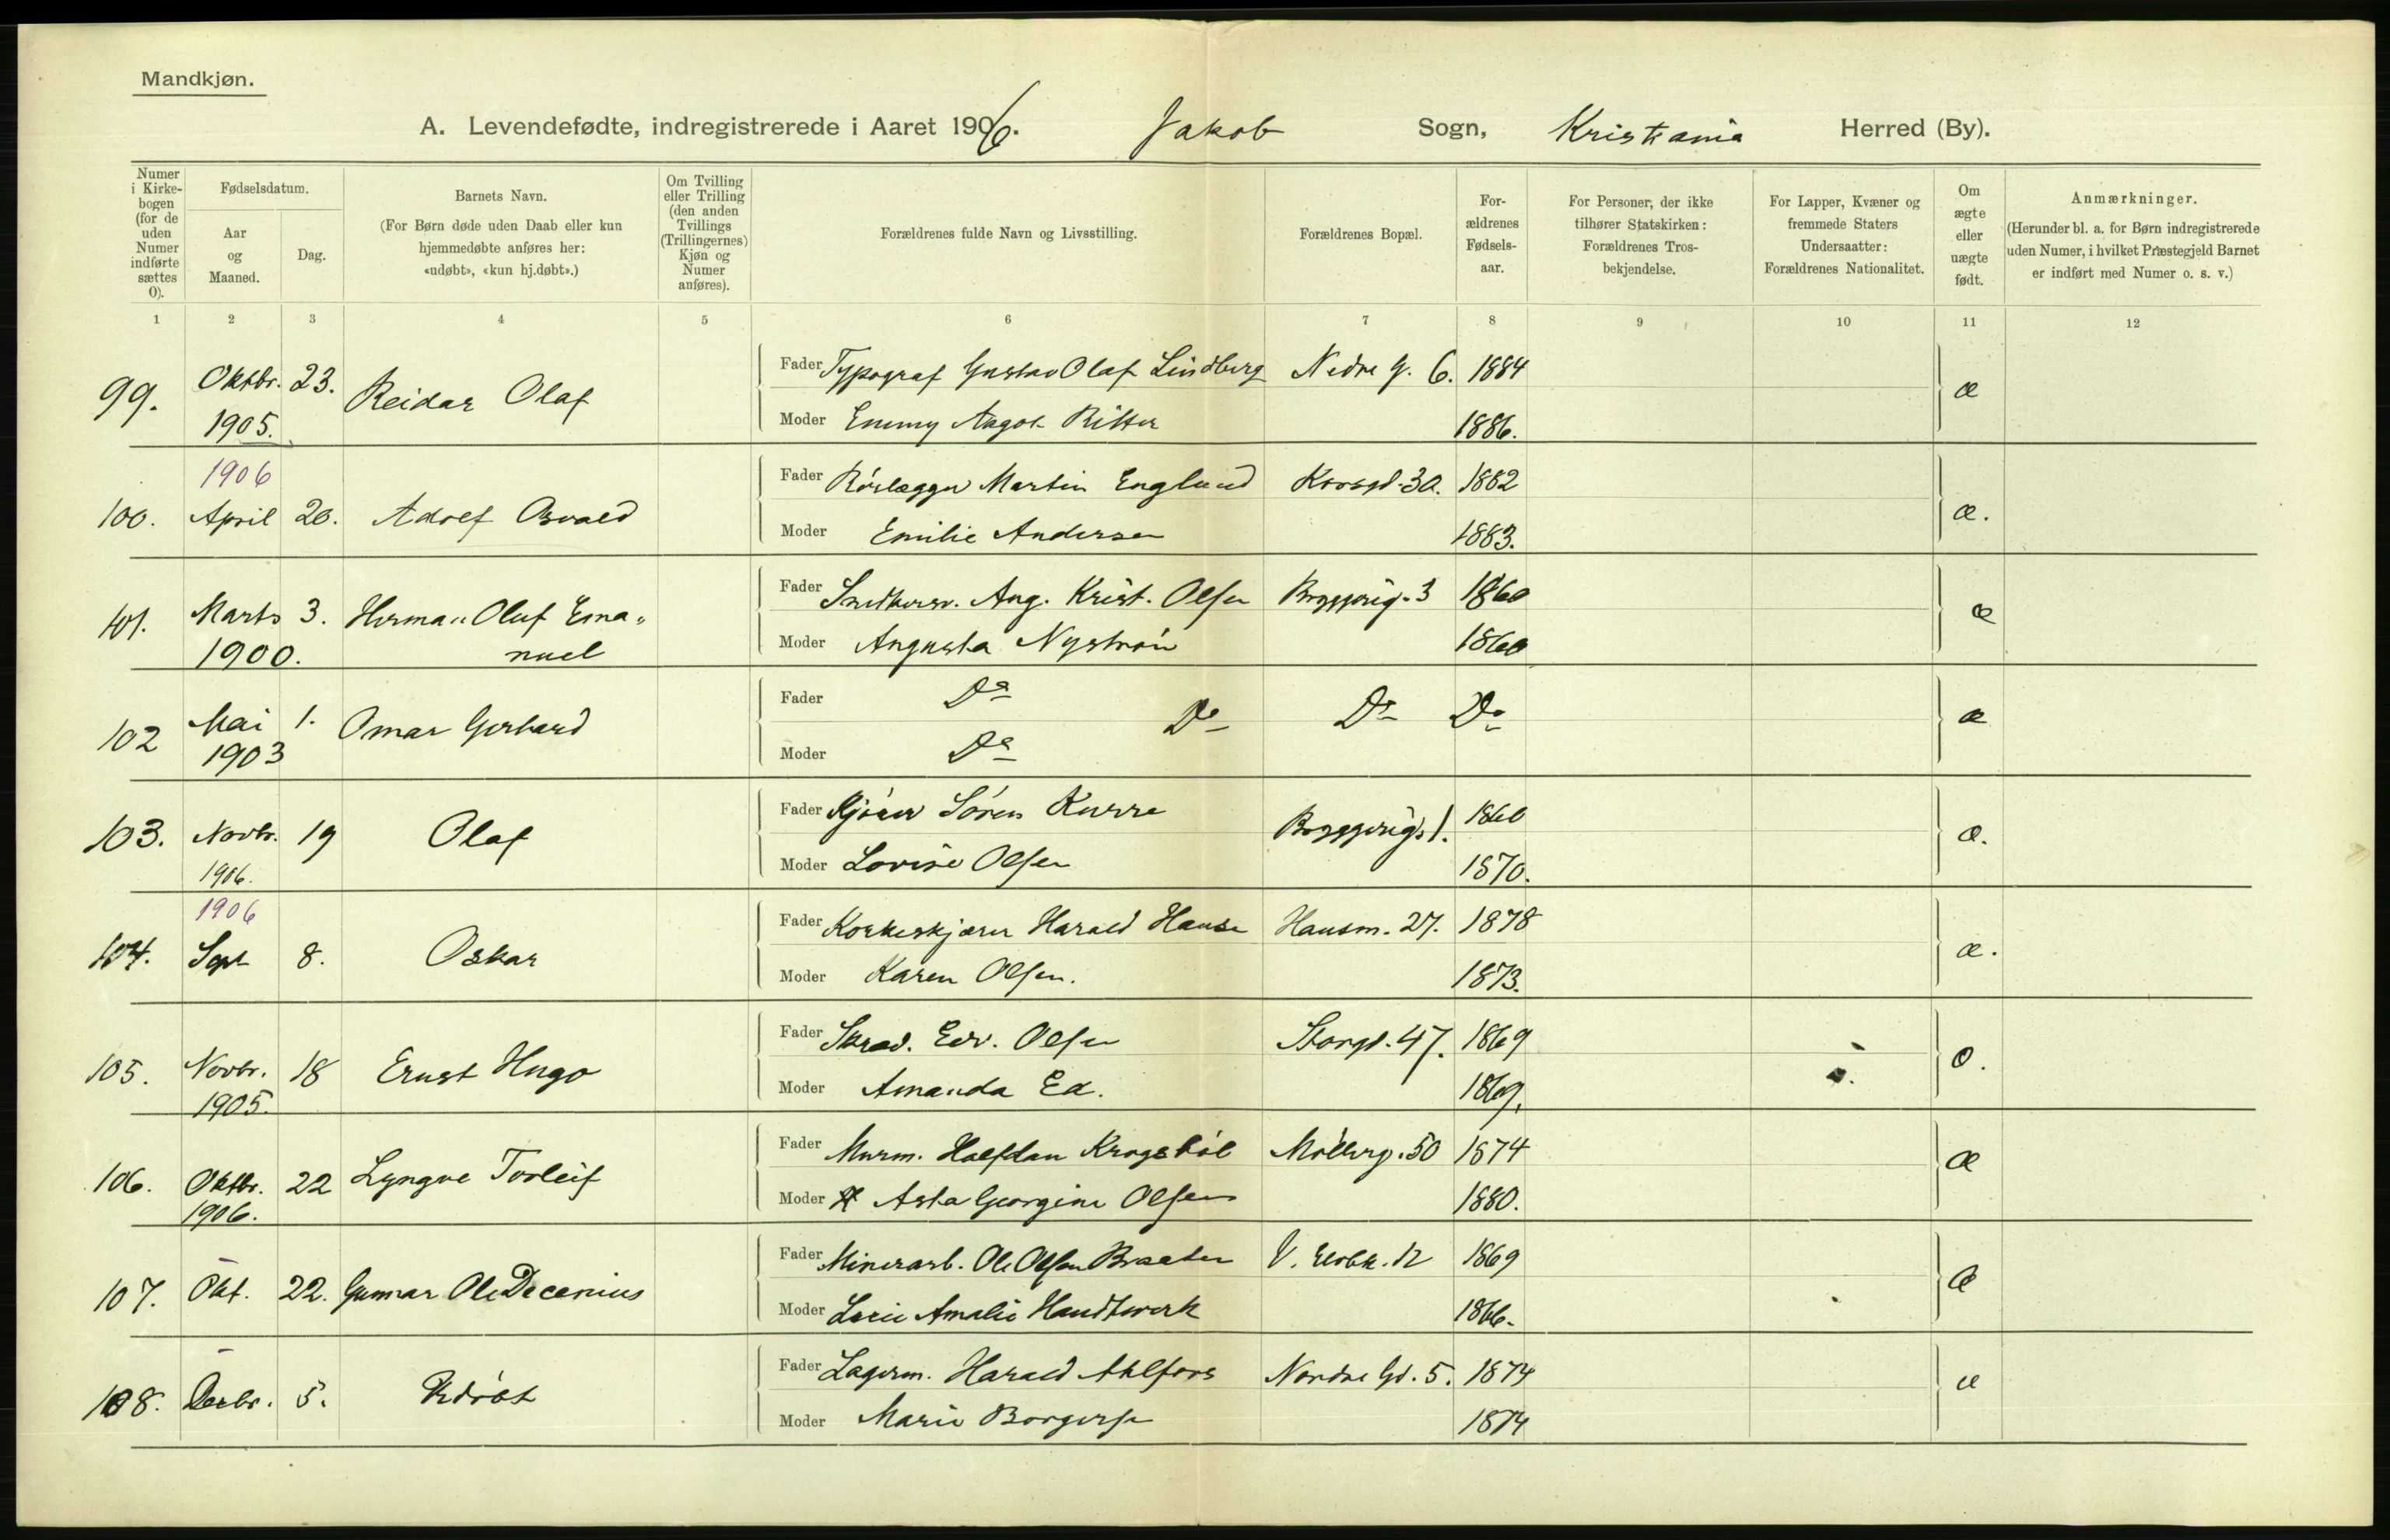 Mandkjøn.
A. Levendefødte, indregistrerede i Aaret 1906. Jakob Sogn, Kristiania Herred (By).
Numer i Kirkebogen (for de uden Numer indførte sættes 0).
Fødselsdatum.
Aar og Maaned.
Dag.
Barnets Navn.
(For Børn døde uden Daab eller kun hjemmedøbte anføres her: «udøbt», «kun hj.døbt».)
Om Tvilling eller Trilling (den anden Tvillings (Trillingernes) Kjøn og Numer anføres).
Forældrenes fulde Navn og Livsstilling.
Forældrenes Bopæl.
Forældrenes Fødselsaar.
For Personer, der ikke tilhører Statskirken: Forældrenes Trosbekjendelse.
For Lapper, Kvæner og fremmede Staters Undersaatter: Forældrenes Nationalitet.
Om ægte eller uægte født.
Anmærkninger.
(Herunder bl. a. for Børn indregistrerede uden Numer, i hvilket Præstegjeld Barnet er indført med Numer o. s. v.)
1 2 3 4 5 6 7 8 9 10 11 12
99. Oktbr. 23. Reidar Olaf Fader Typograf Gustav Olaf Lindberg Nedre G. 6. 1884 æ
1905. Moder Emmy Aagot Ritter 1886.
1906
100. April 20. Adolf Osvald Fader Rørlægger Martin Englund Korsgd. 30. 1882 æ.
Moder Emilie Andersen 1883.
101. Marts 3. Herman Oluf Ema„ Fader Snedkersv. Aug. Krist. Olsen Bryggerig. 3 1860 æ
1900. nuel Moder Augusta Nystrøm 1860
102 Mai 1. Omar Gerhard Fader Do Do Do Do æ
1903 Moder Do
103. Novbr. 19 Olaf Fader Kjører Søren Kurra Bryggerig. 1. 1860 æ.
1906. Moder Lovise Olsen 1870.
1906
104. Sept 8. Oskar Fader Korkeskjærer Harald Hansen Hausm. 27. 1878 æ.
Moder Karen Olsen. 1873.
105. Novbr. 18 Ernst Hugo Fader Skræd. Edv. Olsen Storgd. 47. 1869
1905. Moder Amanda Ed. 1869.
106. Oktbr. 22 Lyngve Torleif Fader Murm. Halfdan Krogsbøl Møllerg. 50 1874 æ
1906. Moder Asta Georgine Olsen 1880.
107. Okt. 22. Gunnar Ole Decenius Fader Minerarb. Ole Olsen Braaten V. Elvbk. 12 1869 æ
Moder Amalie Handtwerk 1866.
108. Decbr. 5. Udøbt Fader Lagerm. Harald Ahlfors Nordre Gd. 5. 1874 u
Moder Marie Borgersen 1874